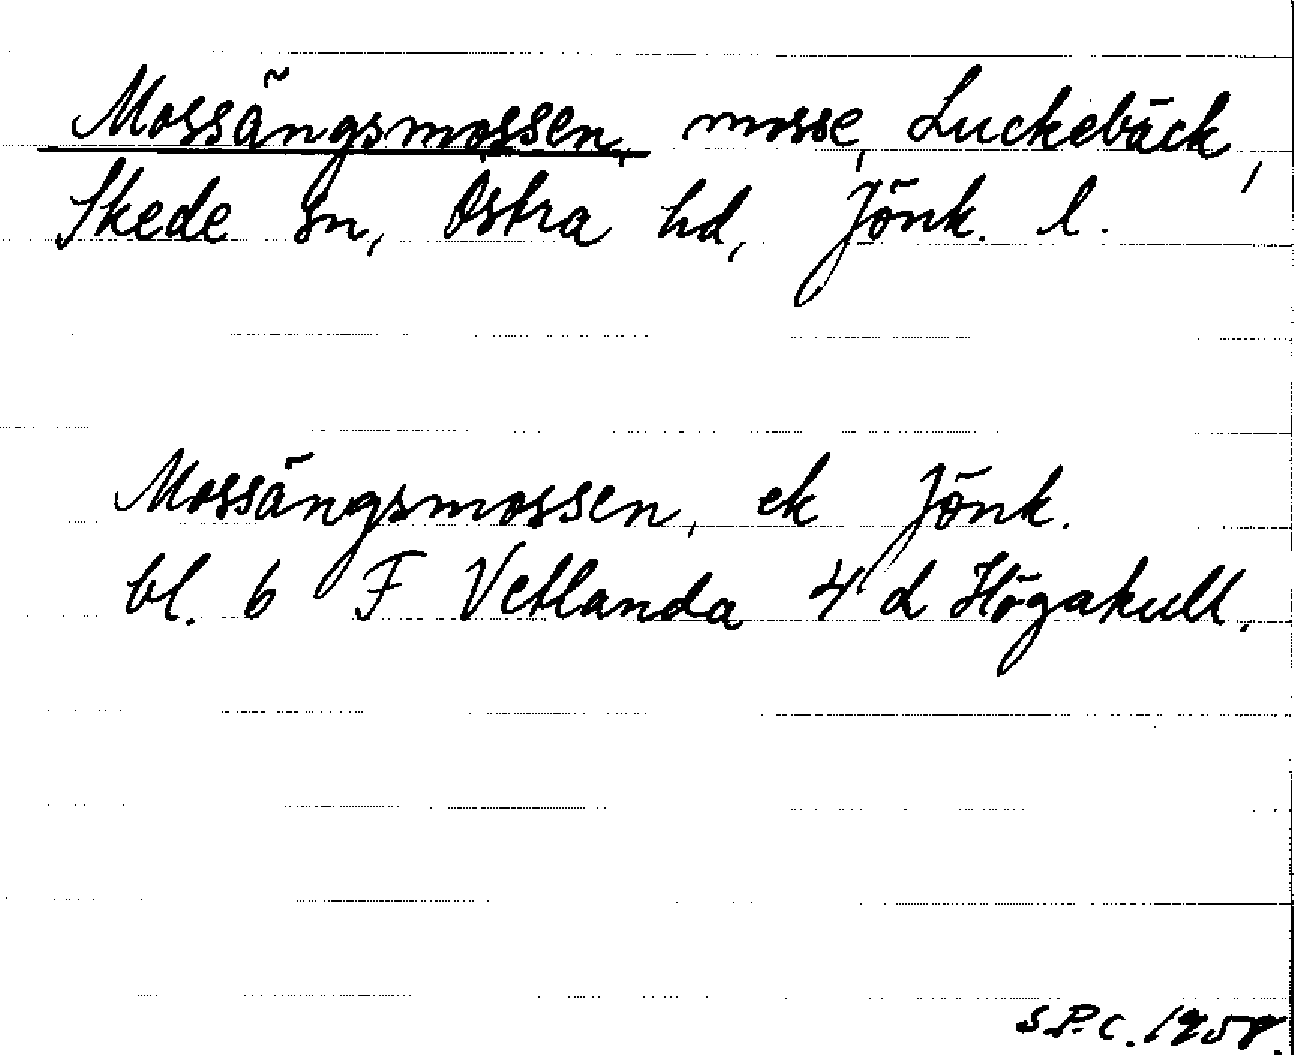 Mossängsmossen, mosse, Luckebäck,
Skede sn, Östra hd, Jönk. l.
Mossängsmossen, ek Jönk.
bl. 6 F Vetlanda 4 d Högakull.
S.P.C. 1958.